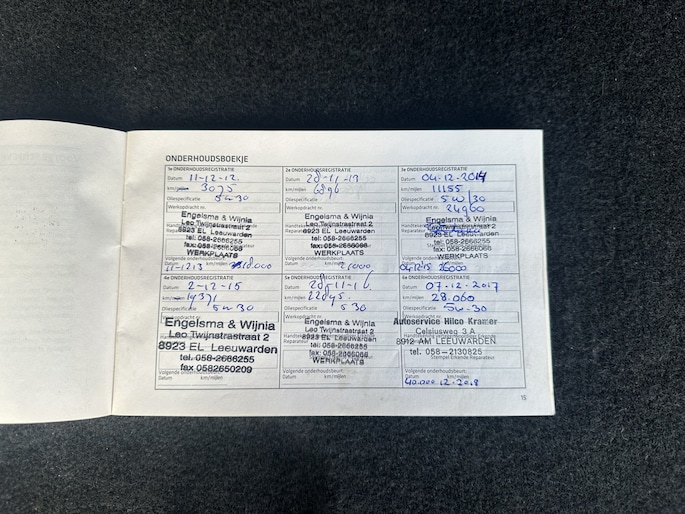 ONDERHOUDSBOEKJE
1e ONDERHOUDSREGISTRATIE
Datum 11-12-12
km/mijlen 3075
Oliespecificatie 5w30
Werkopdracht nr.
Engelsma & Wijnia
Leo Twijnstrastraat 2
8923 EL Leeuwarden
tel: 058-2666255
WERKPLAATS
Volgende onderhoudsbeurt:
Datum km/mijlen
2e ONDERHOUDSREGISTRATIE
Datum 28-11-13
km/mijlen 6896
Oliespecificatie
Werkopdracht nr.
Engelsma & Wijnia
Leo Twijnstrastraat 2
8923 EL Leeuwarden
tel: 058-2666255
WERKPLAATS
Volgende onderhoudsbeurt:
Datum km/mijlen 21000
3e ONDERHOUDSREGISTRATIE
Datum 04-12-2014
km/mijlen 11155
Oliespecificatie 5w/30
Werkopdracht nr. 24960
Engelsma & Wijnia
8923 EL Leeuwarden
tel: 058-2666255
WERKPLAATS
26000
4e ONDERHOUDSREGISTRATIE
Datum 2-12-15
km/mijlen 19371
Oliespecificatie 5w30
Engelsma & Wijnia
Leo Twijnstrastraat 2
8923 EL Leeuwarden
tel. 058-2666255
fax 0582650209
Volgende onderhoudsbeurt:
Datum km/mijlen
5e ONDERHOUDSREGISTRATIE
Datum 28-11-16
km/mijlen
Oliespecificatie 5 30
Engelsma & Wijnia
Leo Twijnstrastraat 2
8923 EL Leeuwarden
tel: 058-2666255
WERKPLAATS
Volgende onderhoudsbeurt:
Datum km/mijlen
6e ONDERHOUDSREGISTRATIE
Datum 07-12-2017
km/mijlen 28.060
Oliespecificatie 5w-30
Autoservice Hilco Kramer
Celsiusweg 3 A
8912 AM LEEUWARDEN
tel. 058-2130825
Stempel Erkende Reparateur
Volgende onderhoudsbeurt:
Datum km/mijlen
40.000 12-2018
15